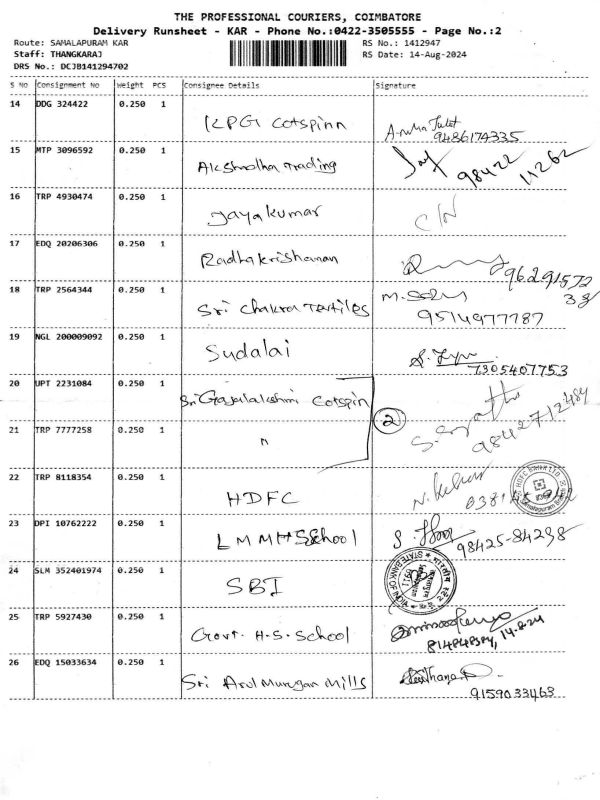 THE PROFESSIONAL COURIERS, COIMBATORE
Delivery Runsheet - KAR - Phone No.:0422-3505555 - Page No.:2
Route: SAMALAPURAM KAR RS No.: 1412947
Staff: THANGKARAJ RS Date: 14-Aug-2024
DRS No.: DCJB141294702
S No Consignment No Weight PCS Consignee Details Signature
14 DDG 324422 0.250 1 KPG Cotspinn
9486174335
15 MTP 3096592 0.250 1 Trading
98422 11262
16 TRP 4930474 0.250 1 Jayakumar C/N
17 EDQ 20206306 0.250 1 Radhakrishanan
18 TRP 2564344 0.250 1 Sri Chakra Textiles
9514977787
19 NGL 200009092 0.250 1 Sudalai
7305407753
20 UPT 2231084 0.250 1 Sri Gajalakshmi Cotspin
2
9842712484
21 TRP 7777258 0.250 1 "
22 TRP 8118354 0.250 1 HDFC
23 DPI 10762222 0.250 1 LMMHSSchool
98425-84298
24 SLM 352401974 0.250 1 SBI
STATE BANK OF INDIA
25 TRP 5927430 0.250 1 Govt. H.S. School
14-8-24
26 EDQ 15033634 0.250 1 Sri Arul Murugan Mills
9159033463